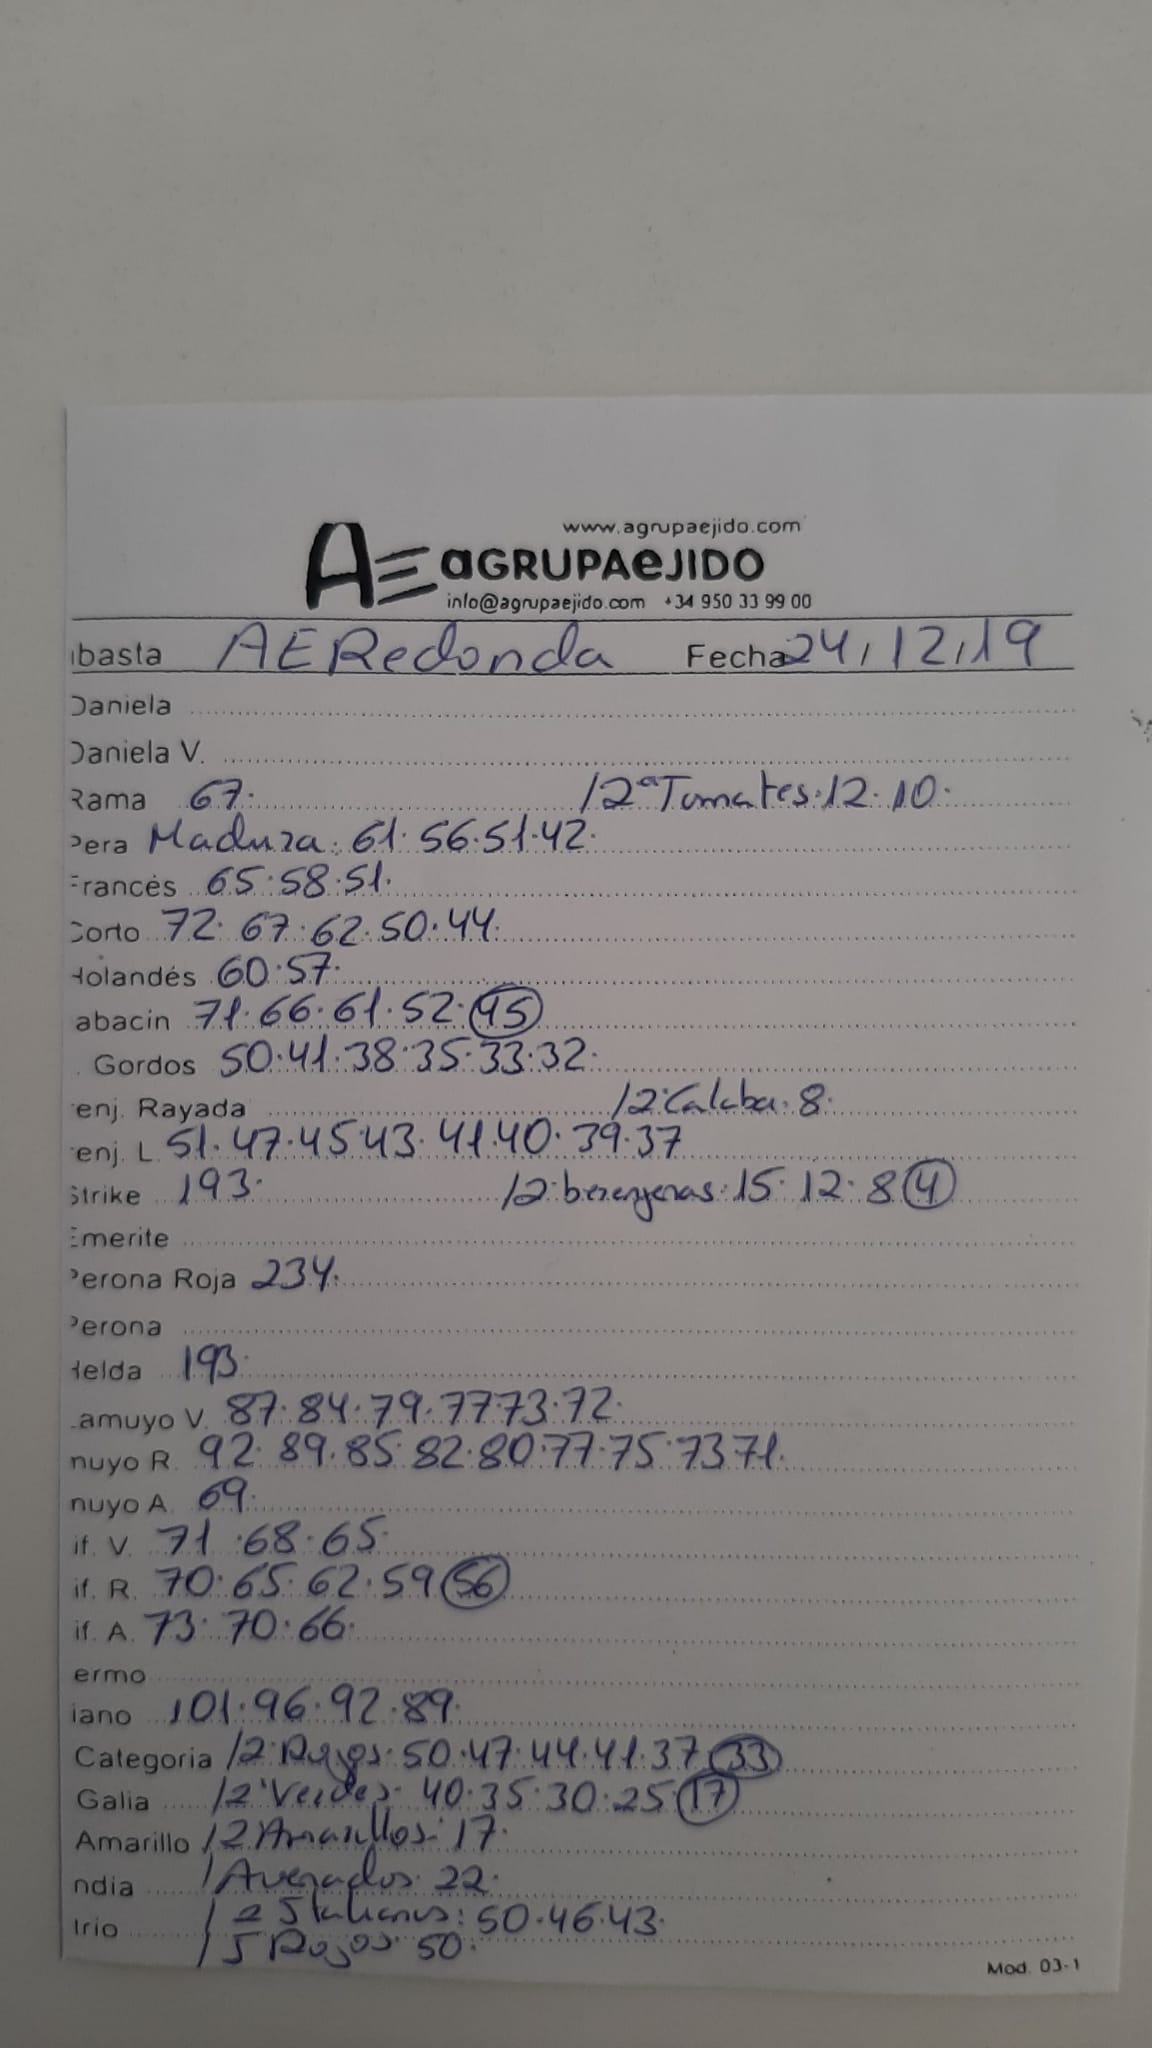 www.agrupaejido.com
AE aGRUPAeJIDO
info@agrupaejido.com +34 950 33 99 00
ubasta AERedonda Fecha 24/12/19
Daniela
Daniela V.
Rama 67. /2ªTomates.12.10.
Pera Madura. 61.56.51.42.
Francés 65.58.51.
Corto 72.67.62.50.44.
Holandés 60.57.
abacin 71.66.61.52.45
. Gordos 50.41.38.35.33.32.
enj. Rayada /2ªCalaba.8.
enj. L 51.47.45.43.41.40.39.37
Strike 193. /2.berenjenas.15.12.8 4
Emerite
Perona Roja 234.
Perona
Helda 193.
Lamuyo V. 87.84.79.77.73.72.
nuyo R. 92.89.85.82.80.77.75.73.71.
nuyo A. 69.
if. V. 71.68.65.
if. R. 70.65.62.59 56
if. A. 73.70.66.
ermo
iano 101.96.92.89.
Categoria /2.Rojos.50.47.44.41.37 33
Galia /2ªVerdes.40.35.30.25.17
Amarillo /2Amarillos.17.
ndia /Averados.22.
lrio /2 Italianos:50.46.43.
/J Rojos.50.
Mod. 03-1